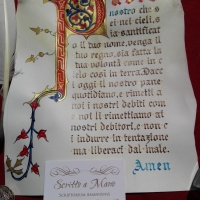 Padre
nostro che s
ei nei cieli, s
ia santificat
o il tuo nome, venga il
tuo regno, sia fatta la
tua volontà come in
cielo così in terra. Dacc
i oggi il nostro pane
quotidiano, e rimetti
a noi i nostri debiti com
e noi li rimettiamo ai
nostri debitori, e non c
i indurre in tentazione
ma liberaci dal male.
Amen
Scritto a Mano